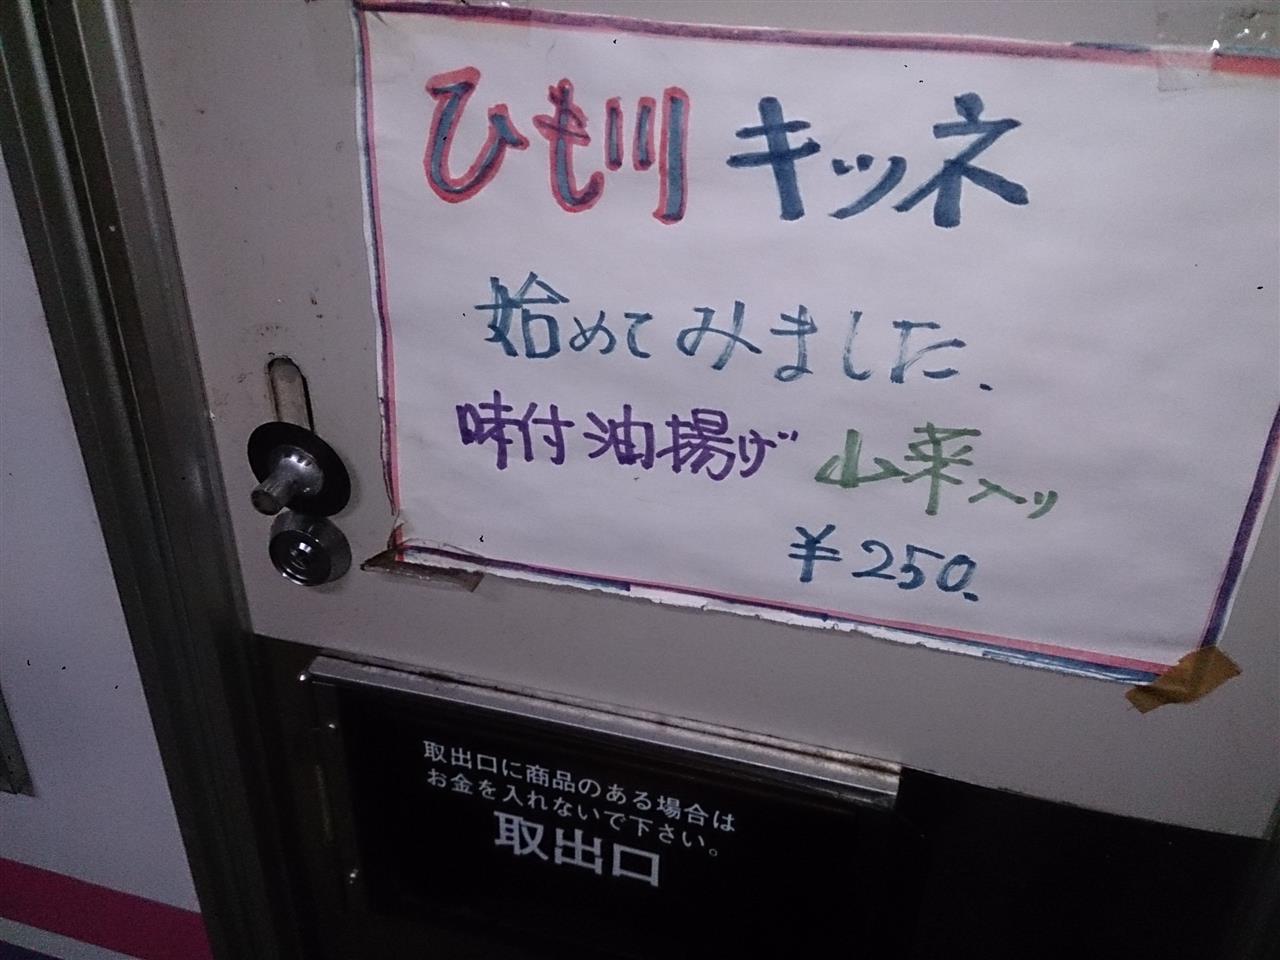 ひも川 キツネ
始めてみました、
味付油揚げ 山菜入り
¥250.
取出口に商品のある場合は
お金を入れないで下さい。
取出口